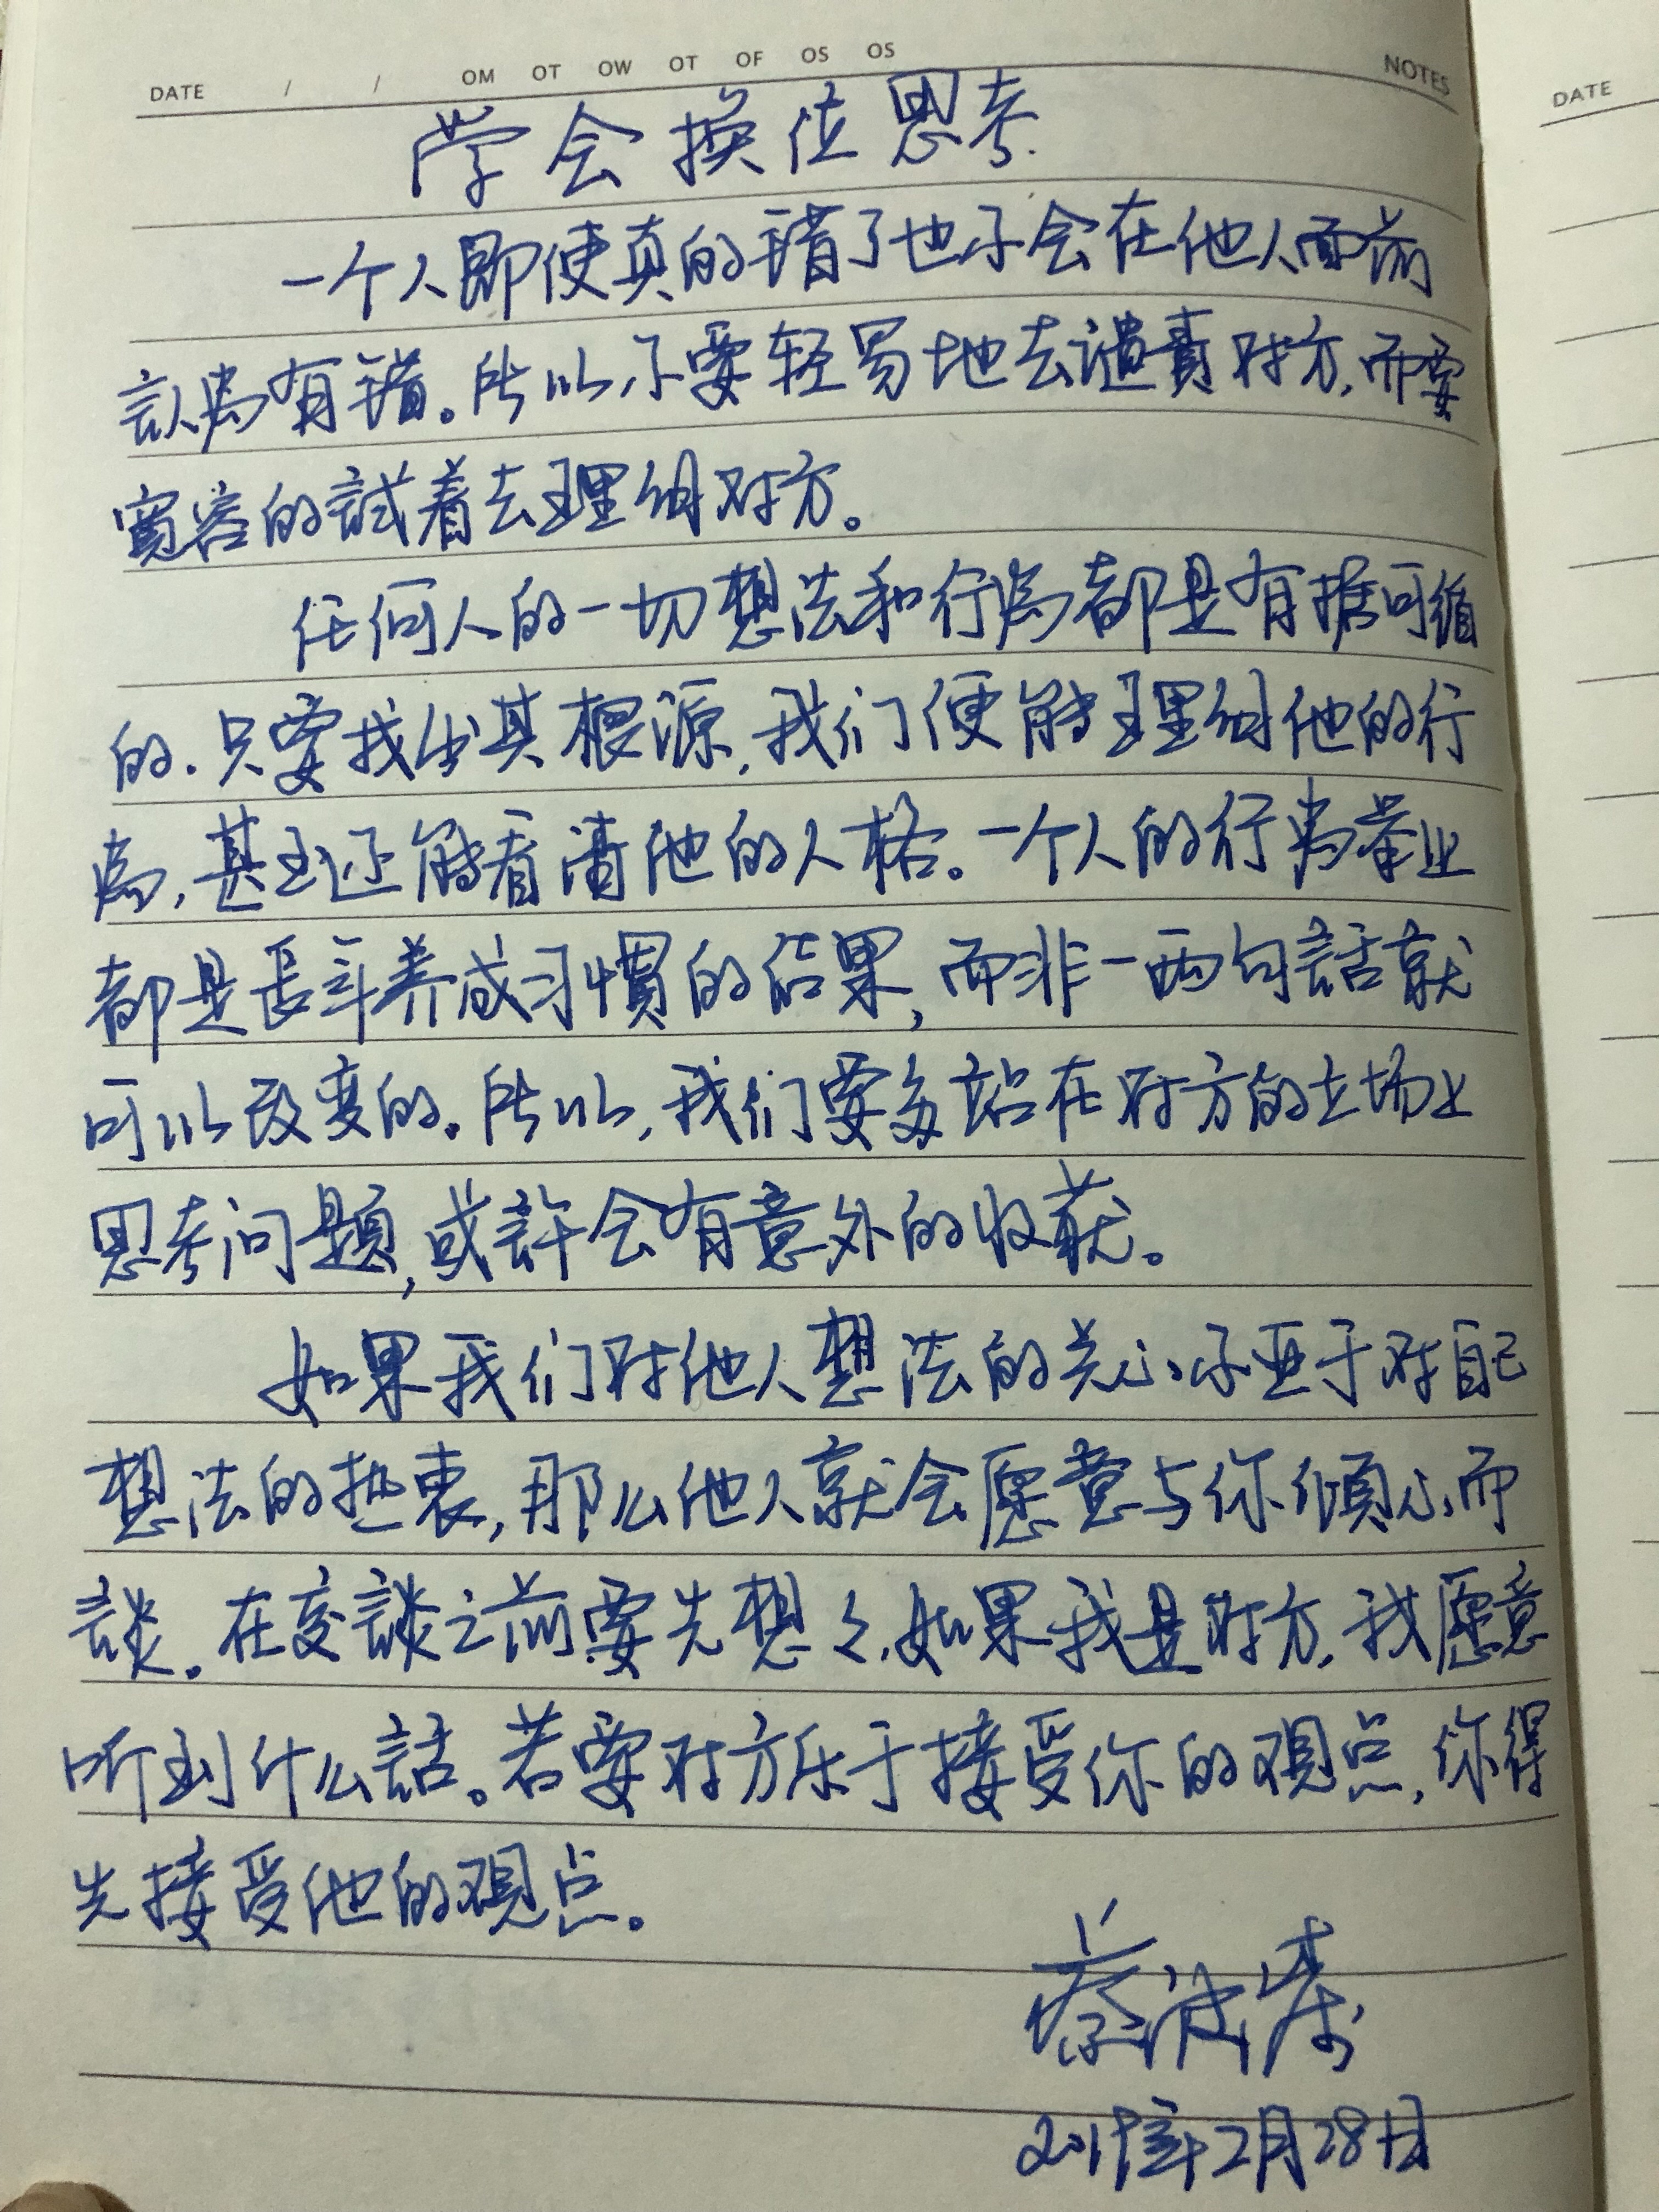 DATE / / OM OT OW OT OF OS OS NOTES
DATE
学会换位思考.
一个人即使真的错了也不会在他人面前
認為有错。所以不要轻易地去谴責对方,而要
寬容的試着去理解对方。
任何人的一切想法和行為都是有据可循
的.只要找出其根源,我们便能理解他的行
為,甚至还能看清他的人格。一个人的行为举止
都是長年养成习慣的结果,而非一两句話就
可以改变的。所以,我们要多站在对方的立场上
思考问题,或許会有意外的收获。
如果我们对他人想法的关心不亚于对自己
想法的热衷,那么他人就会愿意与你傾心而
談。在交談之前要先想々,如果我是对方,我愿意
听到什么話。若要对方乐于接受你的观点,你得
先接受他的观点。
2019年2月28日